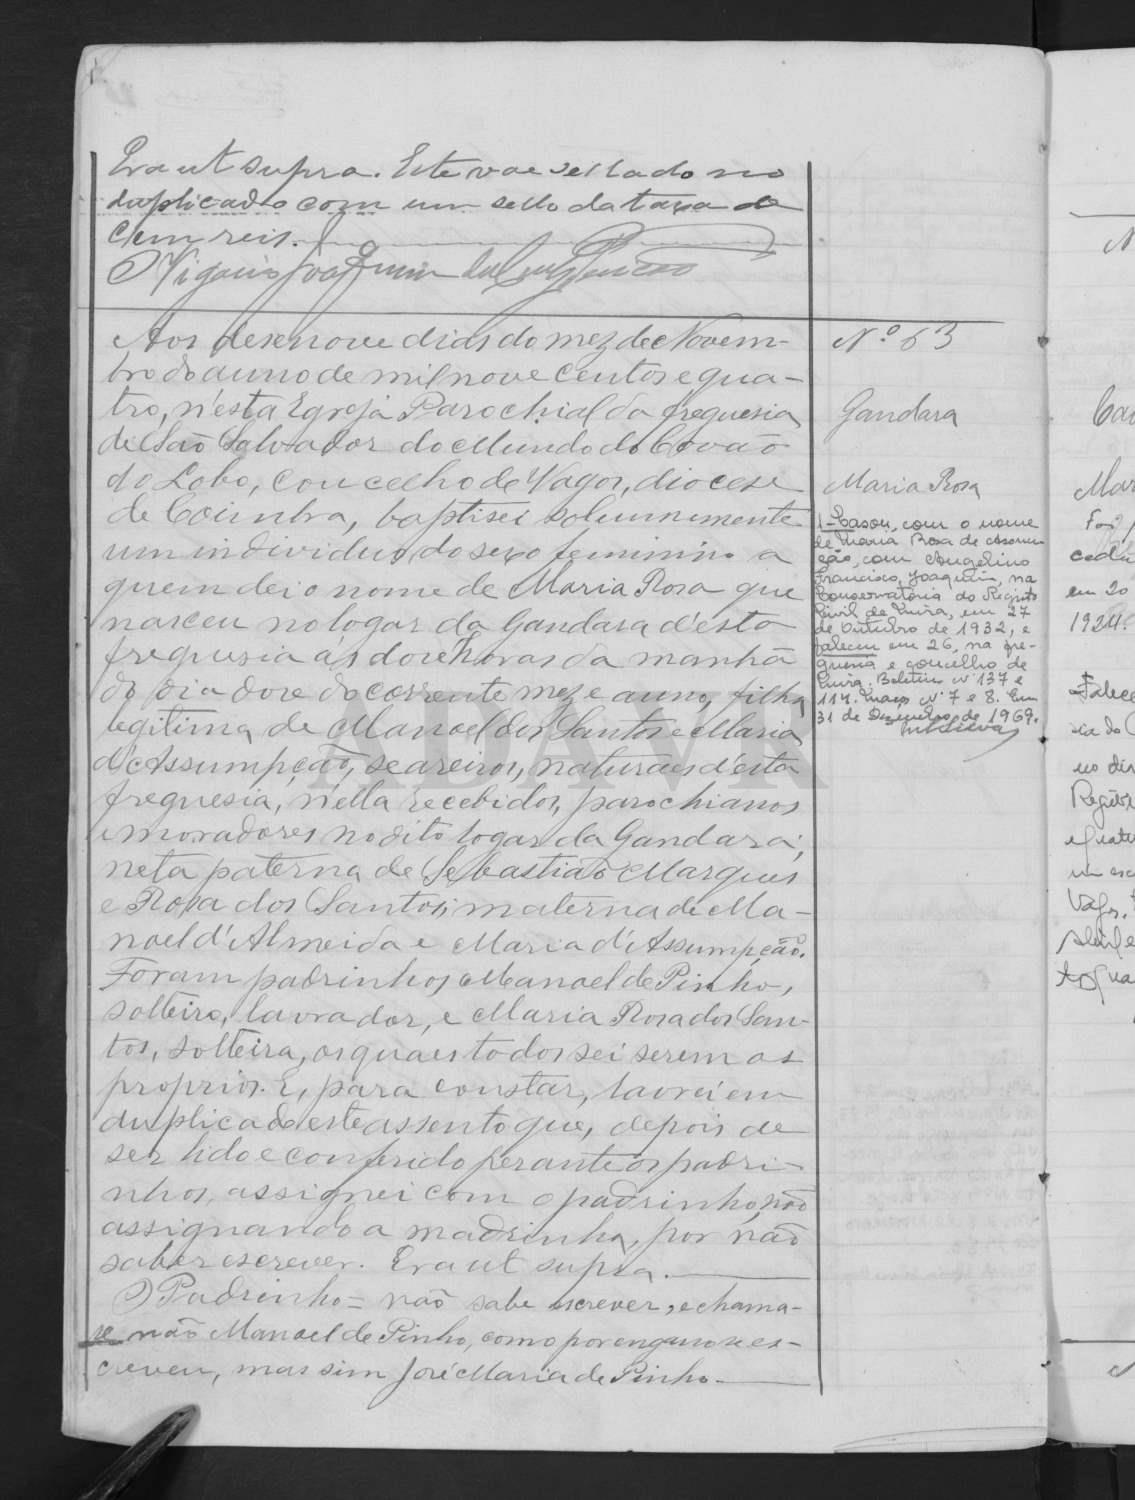 Era ut supra. Este vae sellado no
duplicado com um sello da taxa de
cem reis.
O Vigario Joaquim
Aos desenove dias do mez de Novem-
bro do anno de mil nove centos e qua-
tro, n'esta Egreja Parochial da freguesia
de São Salvador do Mundo do Covão
do Lobo, concelho de Vagos, diocese
de Coimbra, baptisei solemnemente
um individuo do sexo feminino a
quem dei o nome de Maria Rosa que
nasceu no logar da Gandara d'esta
freguesia ás dose horas da manhã
do dia dose do corrente mez e anno, filha
legitima de Manoel dos Santos e Maria
d'Assumpção, seareiros, naturaes d'esta
freguesia, n'ella recebidos, parochianos
e moradores no dito logar da Gandara;
neta paterna de Sebastião Marques
e Rosa dos Santos; materna de Ma-
noel d'Almeida e Maria d'Assumpção.
Foram padrinhos Manoel de Pinho,
solteiro, lavrador, e Maria Rosa dos San-
tos, solteira, os quaes todos sei serem os
proprios. E, para constar, lavrei em
duplicado este assento que, depois de
ser lido e conferido perante os padri-
nhos, assignei com o padrinho, não
assignando a madrinha, por não
saber escrever. Era ut supra.
O Padrinho = não sabe escrever, e chama-
se não Manoel de Pinho, como por engano se es-
creveu, mas sim José Maria de Pinho.
Nº 63
Gandara
Maria Rosa
1-Casou, com o nome
de Maria Rosa de Assum
ção, com Angelino
Francisco Joaquim, na
Conservatória do Registo
Civil de Mira, em 27
de Outubro de 1932, e
faleceu em 26, na fre-
guesia e concelho de
Mira. Boletins Nº 137 e
114. Maços Nº 7 e 8. Em
31 de Dezembro de 1969.
ADAVR
N
Mar
em 20
1924.